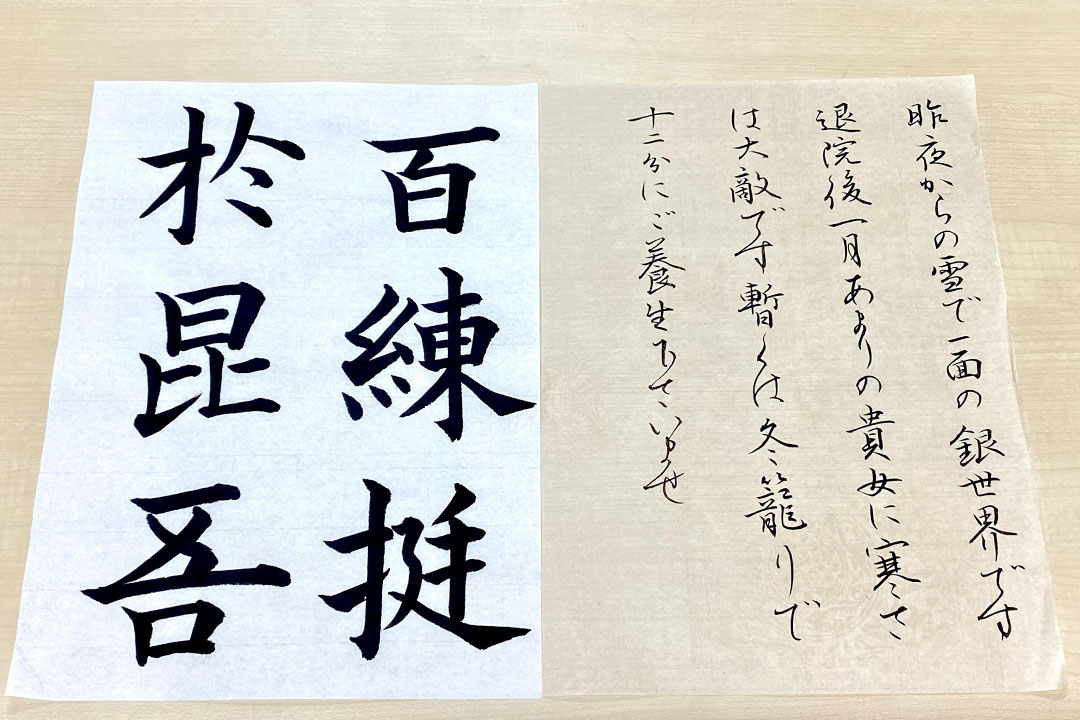 昨夜からの雪で一面の銀世界です
退院後一月あまりの貴女に寒さ
は大敵です暫くは冬籠りで
十二分にご養生下さいませ
百練挺
於昆吾